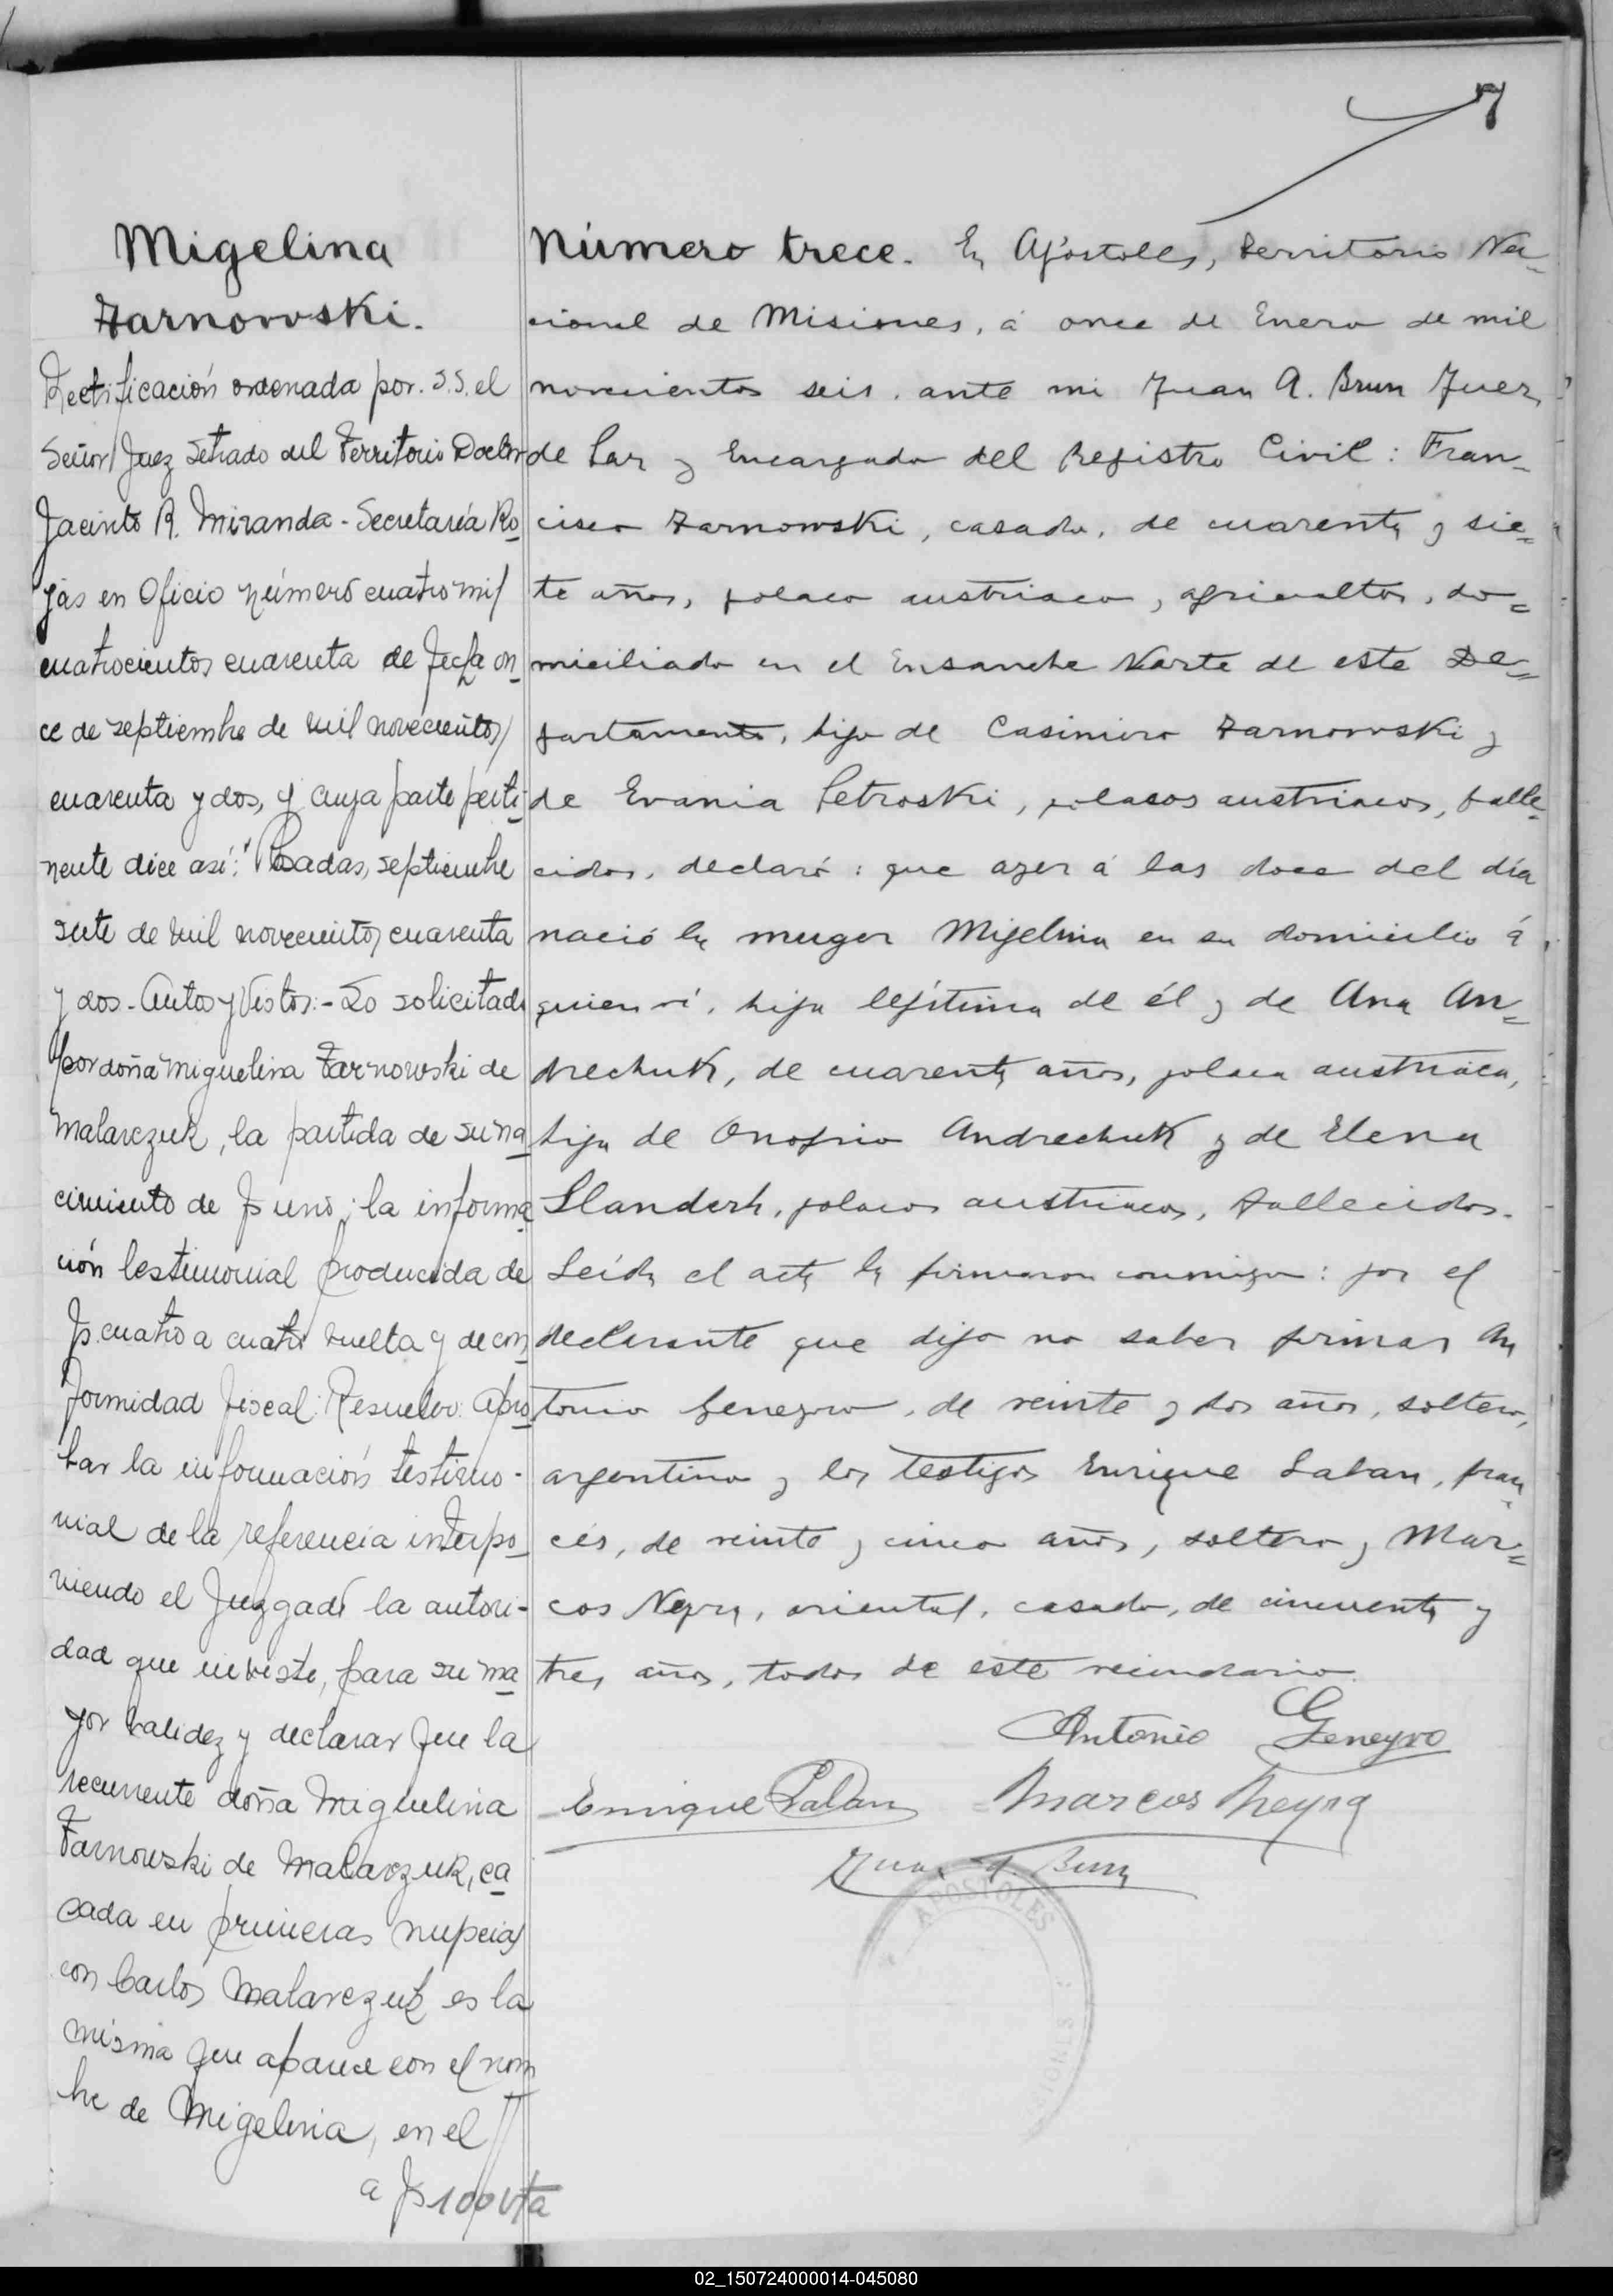 7
Migelina
Zarnowski.
Rectificación ordenada por. S.S. el
Señor Juez Letrado del Territorio Doctor
Jacinto R. Miranda - Secretaría Ro
jas en Oficio número cuatro mil
cuatrocientos cuarenta de fecha on
ce de septiembre de mil novecientos
cuarenta y dos, y cuya parte perti
nente dice así: "Posadas, septiembre
siete de mil novecientos cuarenta
y dos.- Autos y Vistos:- Lo solicitado
por doña Miguelina Tarnowski de
Malarczuk, la partida de su na
cimiento de fs uno; la informa
ción testimonial producida de
fs. cuatro a cuatro vuelta y de con
formidad fiscal: Resuelvo: Apro
bar la información testimo-
nial de la referencia interpo
niendo el Juzgado la autori-
dad que inviste, para su ma
yor validez y declarar que la
recurrente doña Miguelina
Tarnowski de Malarczuk, ca
cada en primeras nupcias
con Carlos Malarczuk es la
misma que aparece con el nom
bre de Migelina, en el
a fs 100 vta
Número trece. En Apóstoles, Territorio Na-
cional de Misiones, á once de Enero de mil
novecientos seis, ante mi Juan A. Brun Juez
de Paz y Encargado del Registro Civil: Fran-
cisco Zarnowski, casado, de cuarenta y sie=
te años, polaco austriaco, agricultor, do=
miciliado en el Ensanche Norte de este De=
partamento, hijo de Casimiro Zarnowski y
de Evania Petroski, polacos austriacos, falle-
cidos, declaró: que ayer á las doce del día
nació la muger Migelina en su domicilio á
quien ví, hija legítima de él y de Ana An=
drechuk, de cuarenta años, polaca austriaca,
hija de Onofrio Andrechuk y de Elena
Slanderh, polacos austriacos, fallecidos.
Leída el acta la firmaron conmigo: por el
declarante que dijo no saber firmar An
tonio Geneyro, de veinte y dos años, soltero,
argentino y los testigos Enrique Laban, fran
cés, de veinte y cinco años, soltero y Mar=
cos Neyra, oriental, casado, de cincuenta y
tres años, todos de este vecindario.
Antonio Geneyro
Enrique Laban Marcos Neyra
Juan A. Brun
APOSTOLES
02_150724000014-045080